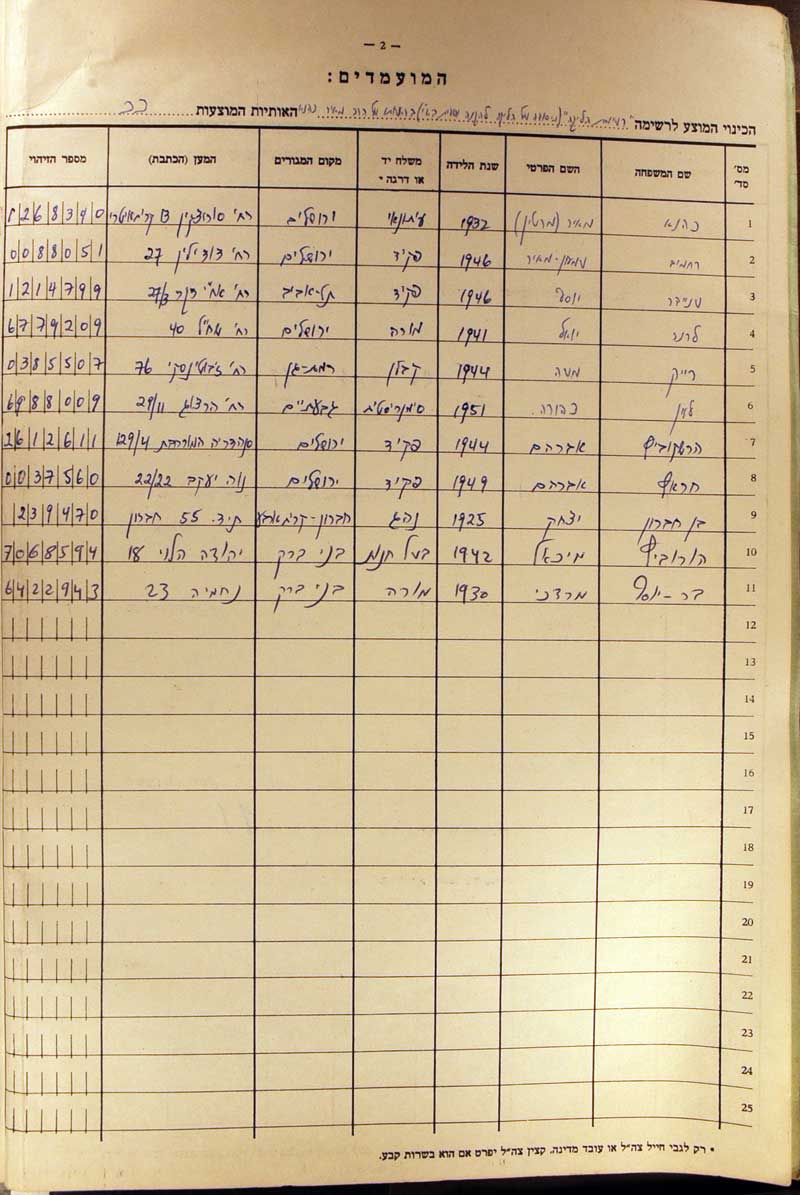 — 2 —
המועמדים:
הכינוי המוצע לרשימה "רשימת הליגה" האותיות המוצעות כך
מס' סד' שם המשפחה השם הפרטי שנת הלידה משלח יד או דרגה * מקום המגורים המען (הכתבת) מספר הזיהוי
1 כהנא מאיר (מרטין) 1932 עיתונאי ירושלים רח' סורוצקין 268340
2 רחמים מאיר 1946 פקיד ירושלים רח' דוד ילין 27 0088051
3 שניידר יוסף 1946 פקיד תל-אביב רח' 27/3 1214799
4 לרנר יואל 1941 מורה ירושלים רח' 40 6779209
5 רייק משה 1944 קבלן רמת-גן רח' ז'בוטינסקי 76 0385507
6 לוין 1951 גבעתיים רח' הרצוג 29/11 88009
7 הרשקוביץ אברהם 1944 פקיד ירושלים סנהדריה המורחבת 129/4 2612611
8 אברהם 1949 פקיד ירושלים נוה יעקב 22/22 0037560
9 בן חברון יצחק 1925 נהג חברון-קרית ארבע ת.ד. 55 חברון 239470
10 הורוביץ מיכאל 1942 בעל חנות בני ברק יהודה הלוי 18 7068594
11 בר-יוסף מרדכי 1930 מורה בני ברק נחמיה 23 6422943
12
13
14
15
16
17
18
19
20
21
22
23
24
25
* רק לגבי חייל צה"ל או עובד מדינה. קצין צה"ל יפרט אם הוא בשרות קבע.